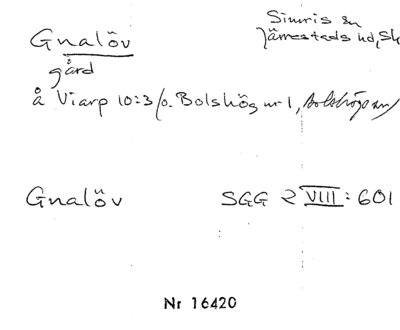 Gnalöv
Simris sn
Järrestads hd, Sk
gård
å Viarp 10:3 /o. Bolshög nr 1,
Gnalöv
SGG 2 VIII: 601
Nr 16420